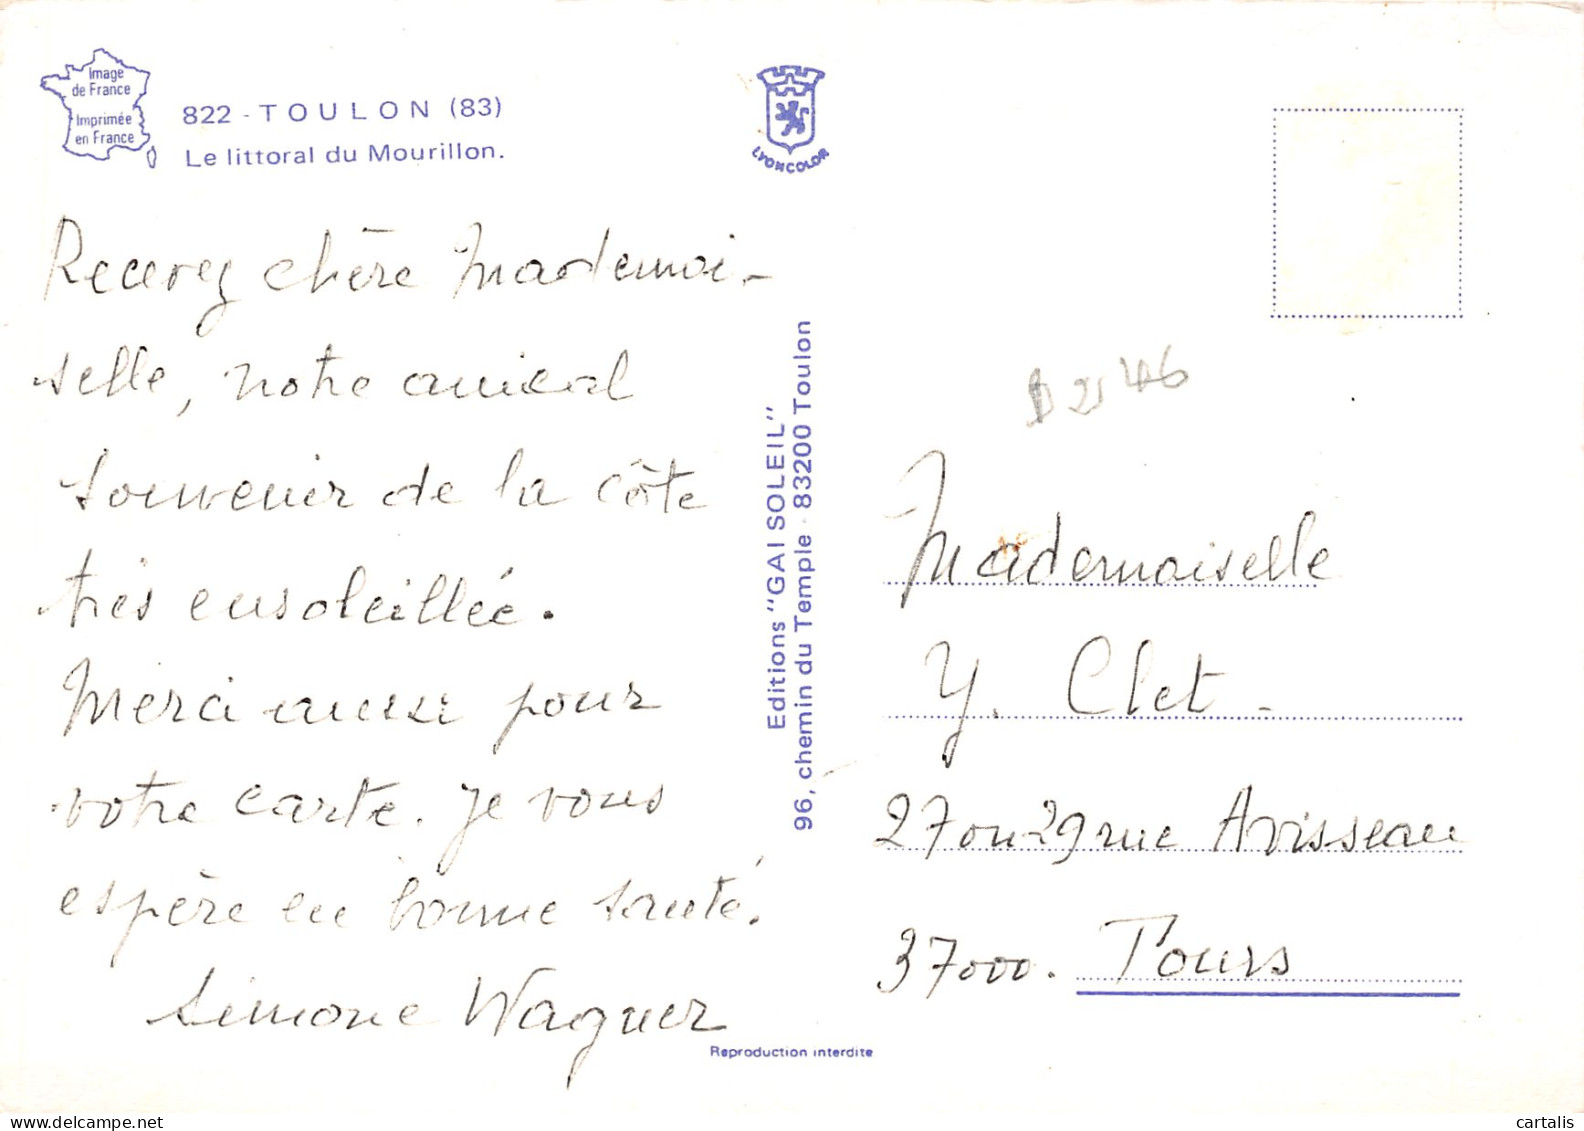 Image
de France
Imprimée
en France
822 - TOULON (83)
Le littoral du Mourillon.
LYONCOLOR
Recevez chère Mademoi-
selle, notre amical
souvenir de la côte
très ensoleillée.
Merci aussi pour
votre carte. Je vous
espère en bonne santé.
Simone Wagner
Editions "GAI SOLEIL"
96, chemin du Temple - 83200 Toulon
Reproduction interdite
Mademoiselle
Y. Clet -
27 ou 29 rue Avisseau
37000. Tours
cartalis